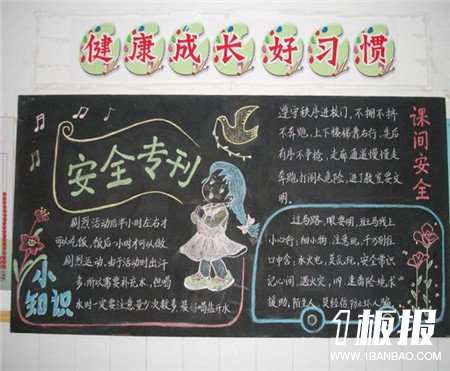 健康成长好习惯
安全专刊
剧烈活动后半小时左右才
可以吃饭,饭后一小时才可以做
剧烈运动,由于活动时出汗
多,所以需要补充水,但喝
水时一定要注意量少次数多,最好喝盐开水
小
知识
遵守秩序进校门,不拥不挤
不奔跑,上下楼梯靠右行,先后
有序不争抢,走廊通道慢慢走
奔跑打闹太危险,进了教室要文
明。
课间安全
过马路,眼要明,斑马线上
小心行,细小物,注意玩,千万别往
口中含,水火电,莫乱玩,安全常识
记心间,遇火灾,119,走离险境求
援助,陌生人,莫轻信防止坏人骗
1板报
WWW.1BANBAO.COM